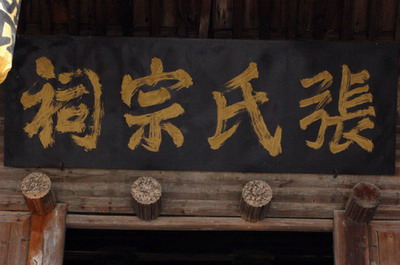 張氏宗祠